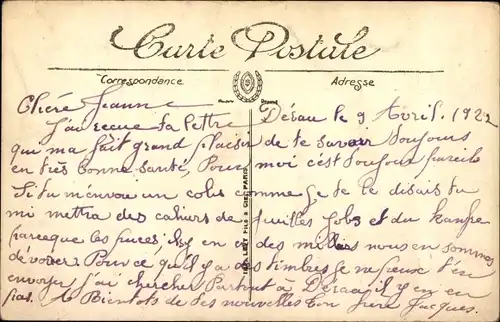 Carte Postale
Correspondance Adresse
Chère Jeanne Débau le 9 Avril. 1922
J'ai recue ta lettre
qui ma fait grand plaisir de te savoir toujours
en très bonne santé, Pour moi c'est toujour pareile
Si tu m'envou un colis comme je te le disais tu
mi mettra des cahiers de feuilles Jobs et du kamfre
parceque les puces il y en a des milles nous en sommes
dévorer. Pour ce qu'il y a des timbres je ne peuse t'en
envoyer j'ai chercher Partout a il y en en
pas. A Bientots de tes nouvelles ton frère Jacques.
LEVY FILS & CIE. PARIS